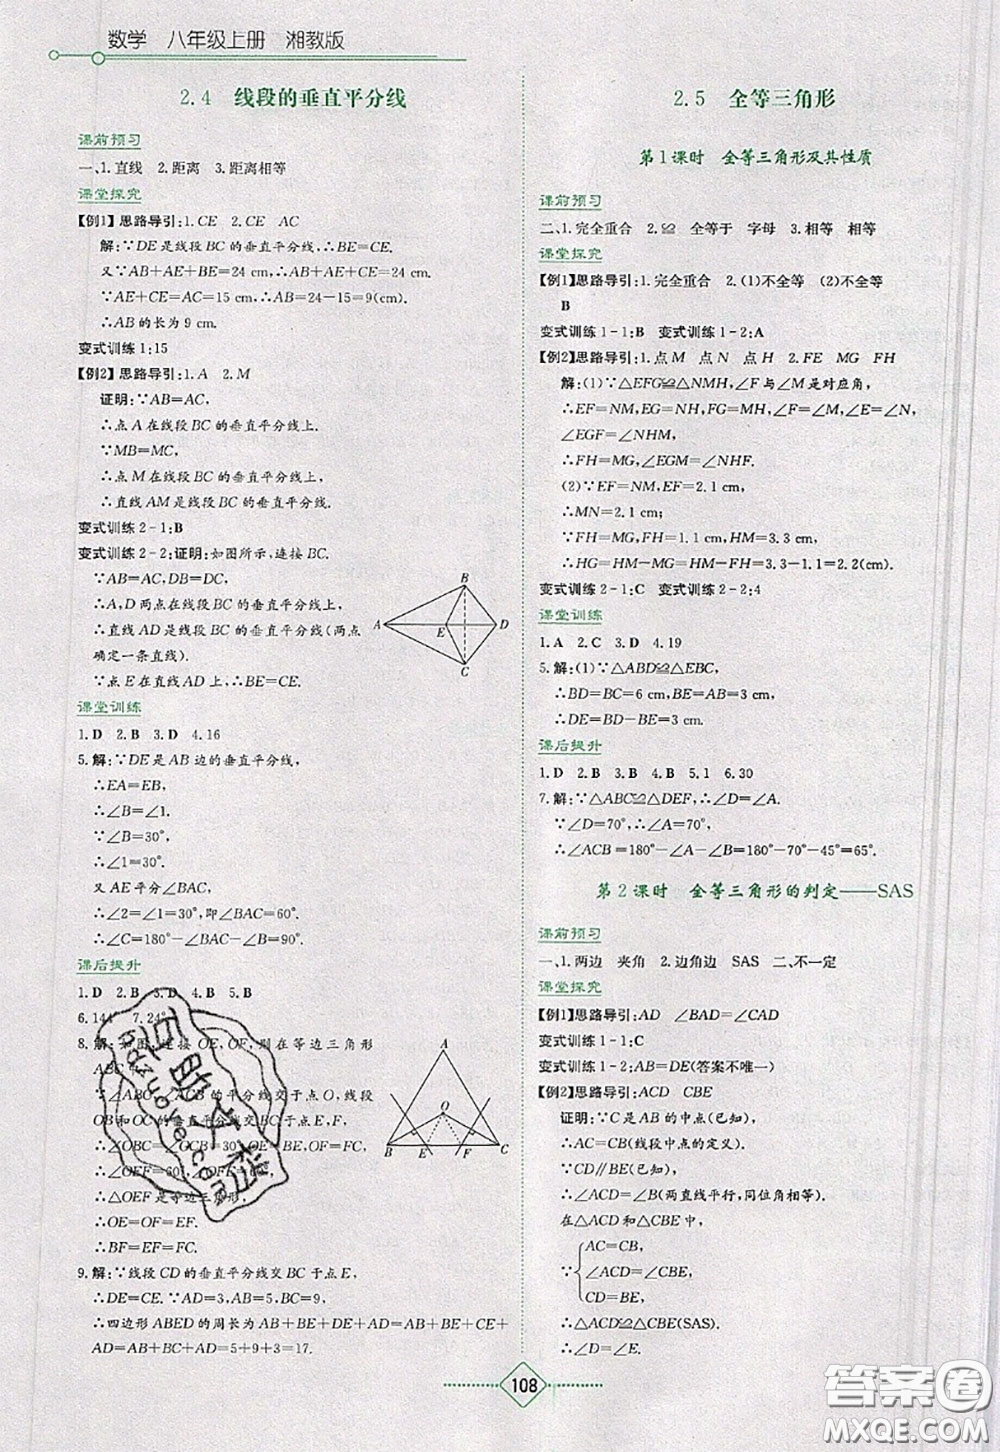 数学 八年级上册 湘教版
2.4 线段的垂直平分线
课前预习
一、1.直线 2.距离 3.距离相等
课堂探究
【例1】思路导引:1.CE 2.CE AC
解:∵DE是线段BC的垂直平分线,∴BE=CE.
又∵AB+AE+BE=24 cm,∴AB+AE+CE=24 cm.
∵AE+CE=AC=15 cm,∴AB=24-15=9(cm).
∴AB的长为9 cm.
变式训练1:15
【例2】思路导引:1.A 2.M
证明:∵AB=AC,
∴点A在线段BC的垂直平分线上.
∵MB=MC,
∴点M在线段BC的垂直平分线上,
∴直线AM是线段BC的垂直平分线.
变式训练2-1:B
变式训练2-2:证明:如图所示,连接BC.
∵AB=AC,DB=DC,
∴A,D两点在线段BC的垂直平分线上,
∴直线AD是线段BC的垂直平分线(两点
确定一条直线).
∵点E在直线AD上,∴BE=CE.
B
A
E
D
C
课堂训练
1.D 2.B 3.D 4.16
5.解:∵DE是AB边的垂直平分线,
∴EA=EB,
∴∠B=∠1.
∵∠B=30°,
∴∠1=30°.
又AE平分∠BAC,
∴∠2=∠1=30°,即∠BAC=60°,
∴∠C=180°-∠BAC-∠B=90°.
课后提升
1.D 2.B 3.D 4.B 5.B
6.144° 7.24°
8.解:如图,连接OE,OF,则在等边三角形
ABC中,∵∠ABC,∠ACB的平分线交于点O,
OB和OC的垂直平分线交BC于点E,F,
∴∠OBC=∠OCB=30°,OE=BE,OF=FC.
∴∠OEF=60°,∠OFE=60°,
∴△OEF是等边三角形,
∴OE=OF=EF.
∴BF=EF=FC.
A
O
B
E
F
C
9.解:∵线段CD的垂直平分线交BC于点E,
∴DE=CE.∵AD=3,AB=5,BC=9,
∴四边形ABED的周长为AB+BE+DE+AD=AB+BE+CE+
AD=AB+BC+AD=5+9+3=17.
2.5 全等三角形
第1课时 全等三角形及其性质
课前预习
二、1.完全重合 2.≌ 全等于 字母 3.相等 相等
课堂探究
【例1】思路导引:1.完全重合 2.(1)不全等 (2)不全等
B
变式训练1-1:B 变式训练1-2:A
【例2】思路导引:1.点M 点N 点H 2.FE MG FH
解:(1)∵△EFG≌△NMH,∠F与∠M是对应角,
∴EF=NM,EG=NH,FG=MH,∠F=∠M,∠E=∠N,
∠EGF=∠NHM.
∴FH=MG,∠EGM=∠NHF.
(2)∵EF=NM,EF=2.1 cm,
∴MN=2.1 cm;
∵FG=MH,FH+HG=FG,FH=1.1 cm,HM=3.3 cm,
∴HG=FG-FH=HM-FH=3.3-1.1=2.2(cm).
变式训练2-1:C 变式训练2-2:4
课堂训练
1.A 2.C 3.D 4.19
5.解:(1)∵△ABD≌△EBC,
∴BD=BC=6 cm,BE=AB=3 cm,
∴DE=BD-BE=3 cm.
课后提升
1.D 2.B 3.B 4.B 5.1 6.30
7.解:∵△ABC≌△DEF,∴∠D=∠A.
∵∠D=70°,∴∠A=70°,
∴∠ACB=180°-∠A-∠B=180°-70°-45°=65°.
第2课时 全等三角形的判定——SAS
课前预习
一、1.两边 夹角 2.边角边 SAS 二、不一定
课堂探究
【例1】思路导引:AD ∠BAD=∠CAD
变式训练1-1:C
变式训练1-2:AB=DE(答案不唯一)
【例2】思路导引:ACD CBE
证明:∵C是AB的中点(已知),
∴AC=CB(线段中点的定义).
∵CD∥BE(已知),
∴∠ACD=∠B(两直线平行,同位角相等).
在△ACD和△CBE中,
AC=CB,
∠ACD=∠CBE,
CD=BE,
∴△ACD≌△CBE(SAS).
∴∠D=∠E.
108
答案圈
MXQE.COM